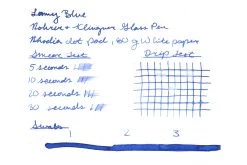 Lamy Blue
Rohrer + Klingner Glass Pen
Rhodia dot pad, 80 g white paper
Smear Test Drip Test
5 seconds
10 seconds
20 seconds
30 seconds
Swabs
1 2 3